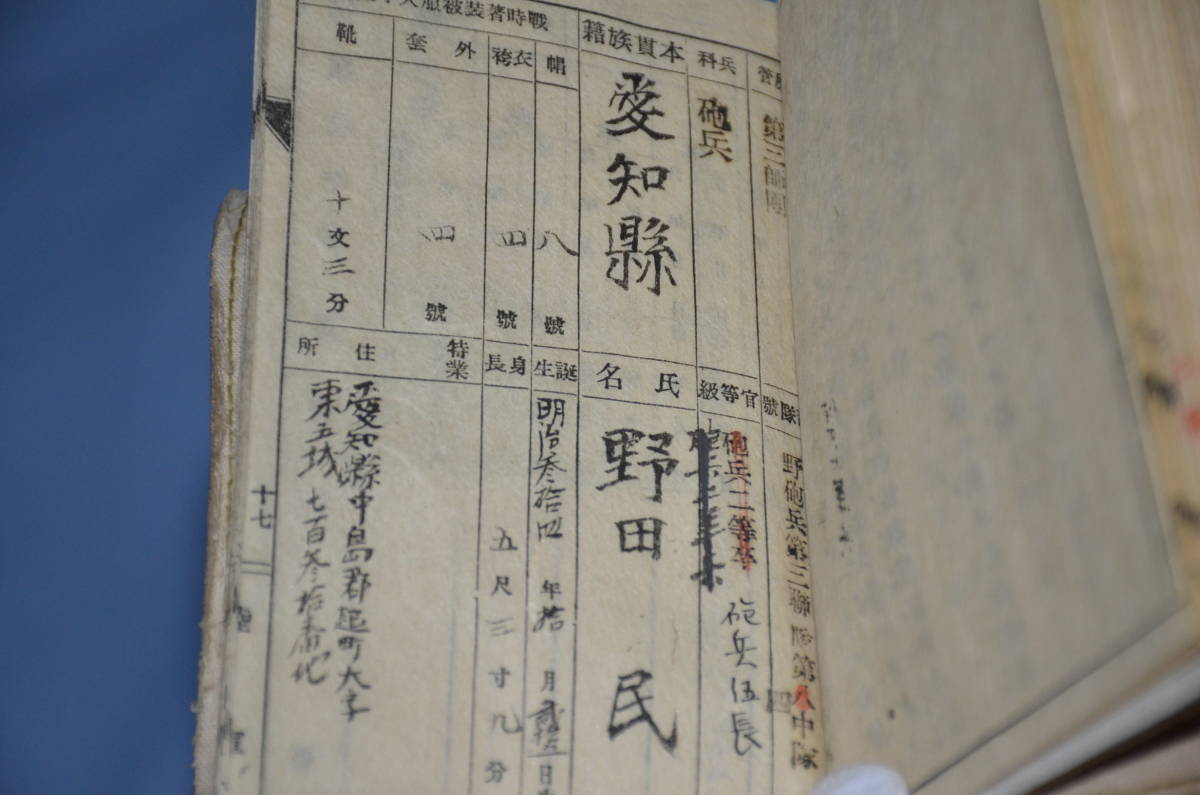 管
第三師團
隊號
野砲兵第三聯隊第八中隊
四
兵科
砲兵
官等級
砲兵二等卒
砲兵伍長
本貫族籍
愛知縣
氏名
野田民
戰時著裝被服
帽
八號
誕生
明治参拾四年拾月
日
衣袴
四號
身長
五尺三寸九分
外套
四號
靴
十文三分
特業
住所
愛知縣中島郡起町大字
東五城七百参拾番地
十七